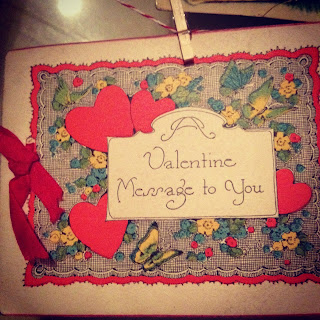 A
Valentine
Message to You